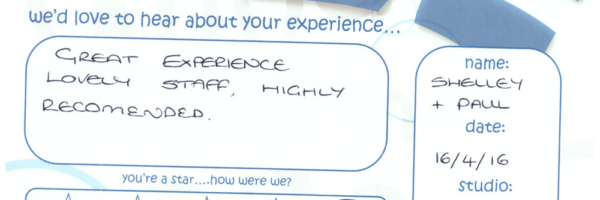 we'd love to hear about your experience...
GREAT EXPERIENCE
LOVELY STAFF, HIGHLY
RECOMENDED.
you're a star....how were we?
name:
SHELLEY
+ PAUL
date:
16/4/16
studio: